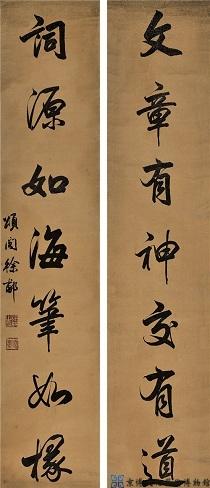 文章有神交有道
詞源如海筆如椽
頌閣徐郙